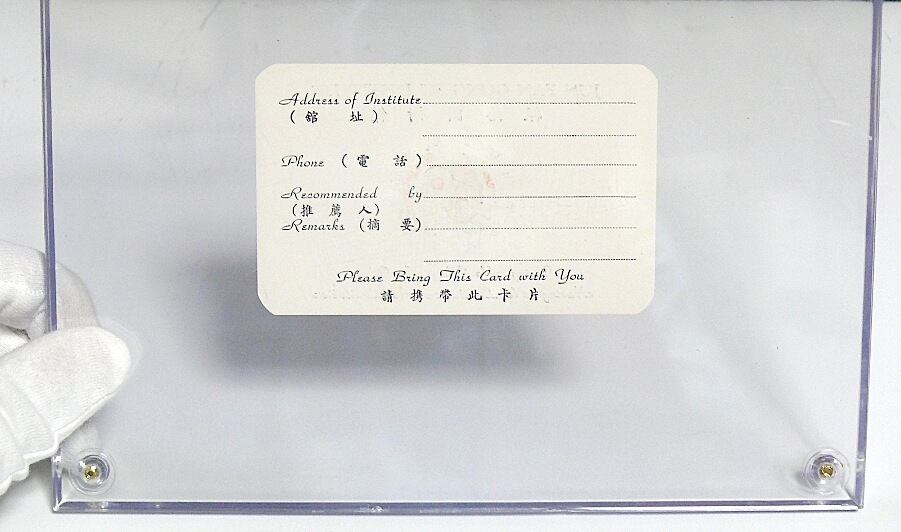 Address of Institute
(舘 址)
Phone (電 話)
Recommended by
(推 薦 人)
Remarks (摘 要)
Please Bring This Card with You
請 携 帶 此 卡 片